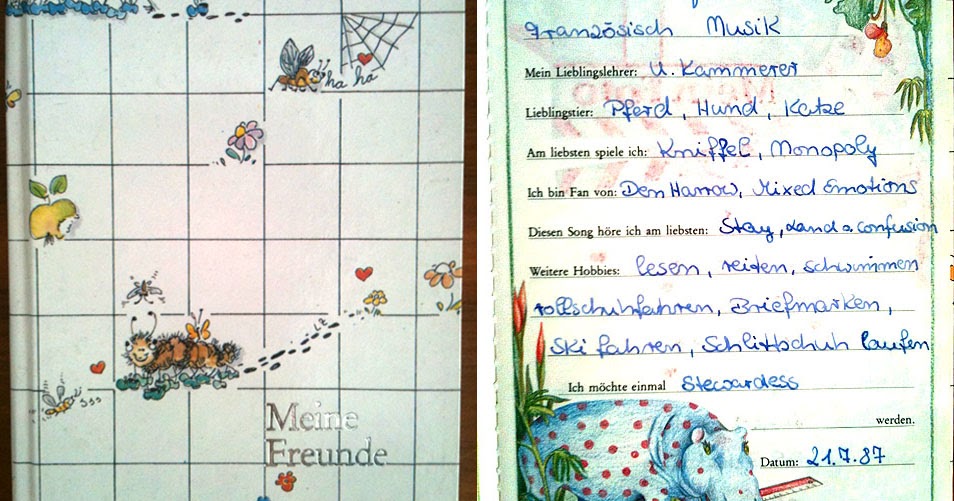 ha ha
Sss
Meine
Freunde
französisch Musik
Mein Lieblingslehrer: U. Kammerer
Lieblingstier: Pferd, Hund, Katze
Am liebsten spiele ich: Kniffel, Monopoly
Ich bin Fan von: Den Harrow, Mixed Emotions
Diesen Song höre ich am liebsten: Stay, Land o. confusion
Weitere Hobbies: lesen, reiten, schwimmen
rollschuhfahren, Briefmarken,
Ski fahren, Schlittschuh laufen
Ich möchte einmal Stewardess
werden.
Datum: 21.7.87